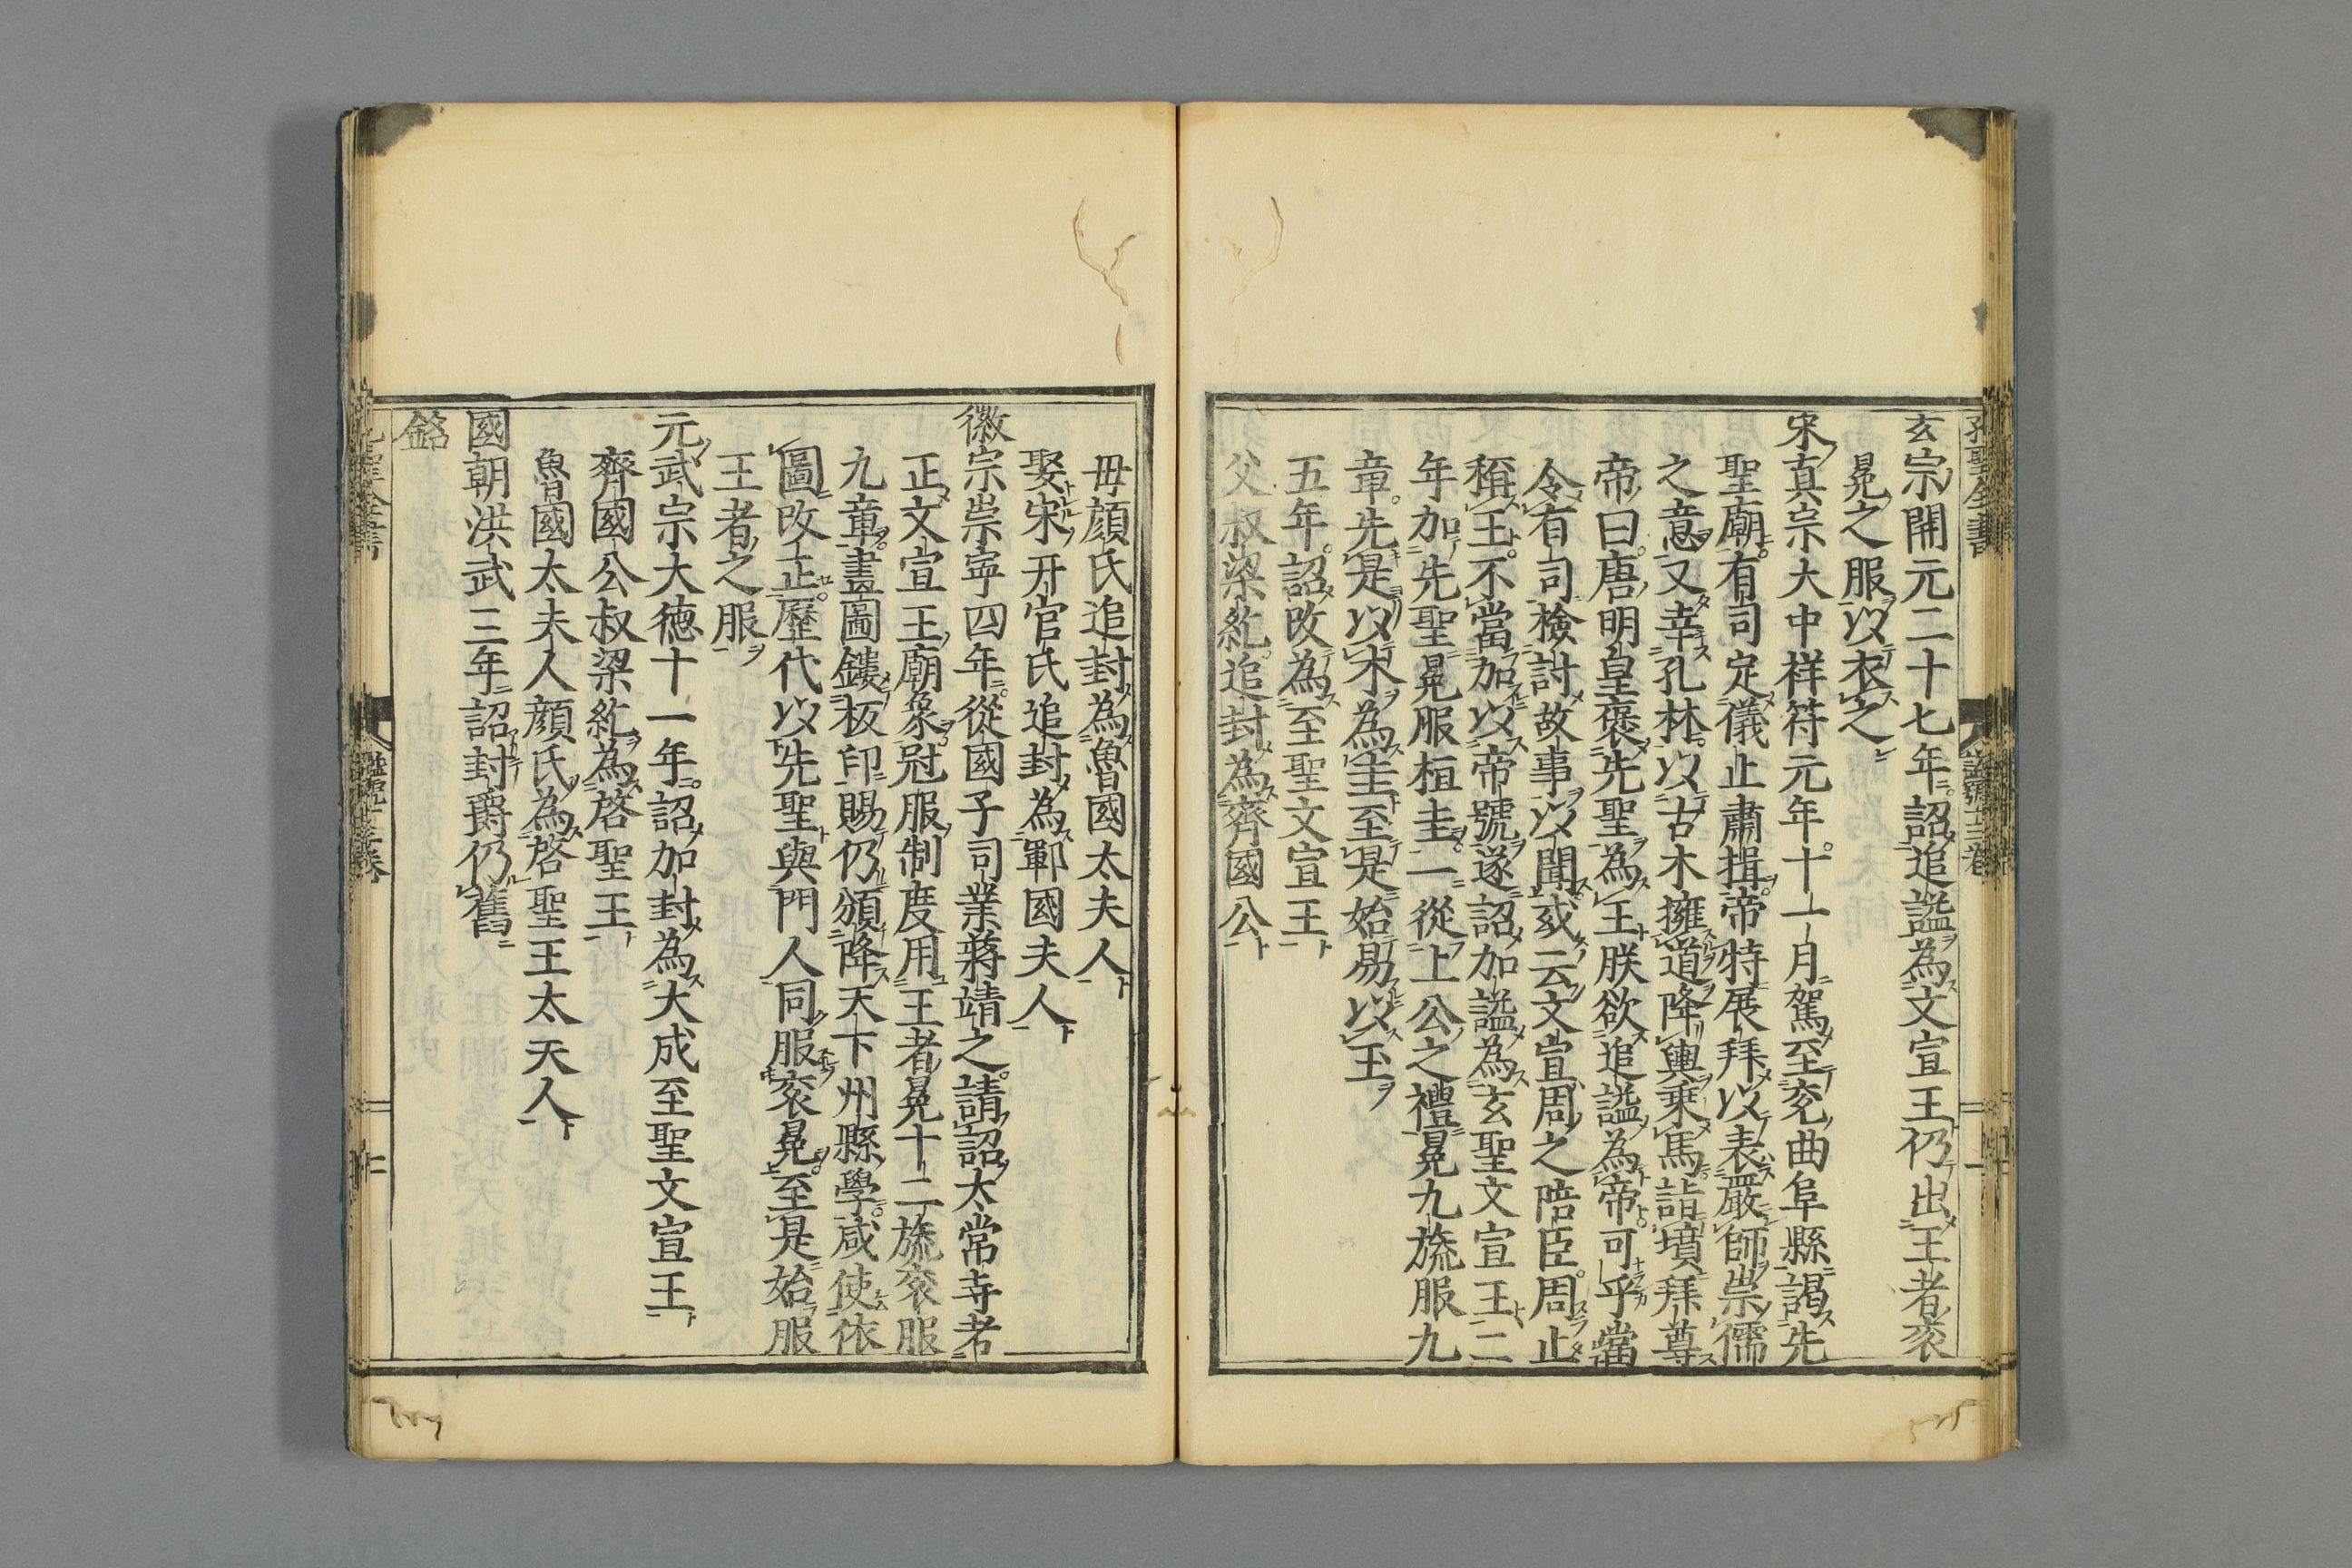 孔聖全書
玄宗開元二十七年詔追謚為文宣王仍出王者衮
冕之服以衣之
宋真宗大中祥符元年十一月駕至兖曲阜縣謁先
聖廟有司定儀止肅揖帝特展拜以表嚴師崇儒
之意又幸孔林以古木擁道降輿乗馬詣墳拜尊
帝曰唐明皇褒先聖為王朕欲追謚為帝可乎當
令有司檢討故事以聞或云文宣周之陪臣周止
稱王不當加以帝號遂詔加謚為玄聖文宣王二
年加先聖冕服桓圭一從上公之禮冕九旒服九
章先是以木為圭至是始易以玉
五年詔改為至聖文宣王
父叔梁紇追封為齊國公
毋顔氏追封為魯國太夫人
娶宋亓官氏追封為鄆國夫人
徽宗崇寧四年從國子司業蔣靖之請詔太常寺考
正文宣王廟象冠服制度用王者冕十二旒衮服
九章畫圖鏤板印賜仍頒降天下州縣學咸使依
圖改正歷代以先聖與門人同服衮冕至是始服
王者之服
元武宗大徳十一年詔加封為大成至聖文宣王
齊國公叔梁紇為啓聖王
魯國太夫人顔氏為啓聖王太夫人
國朝洪武三年詔封爵仍舊
銘